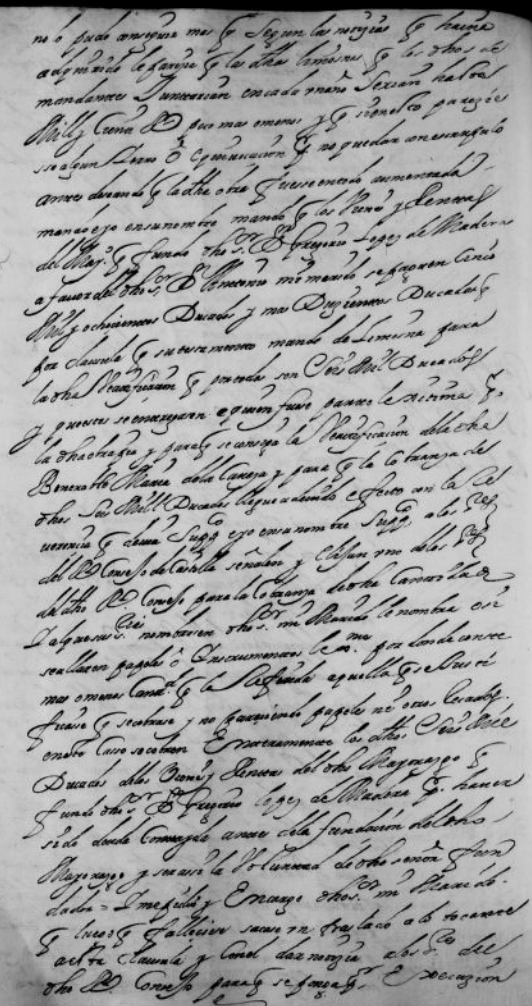 no lo pudo conseguir mas q̃ segun las notizias q̃ havia
adquirido le parezia q̃ las dhas limosnas q̃ los dhos de
mandantes Juntarian en cada un año serian hasta
Mill y cien Ds poco mas o menos y q̃ si en esto padeziese
algun Yerro ô equivocacion q̃ no quedar con escrupulo
antes deseando q̃ la dha obra fuese en todo aumentada
mando e yo en su nombre mando q̃ los vienes y Rentas
del Mayo q̃ fundo dho sr Dn Gregorio Lopez de Madera
a favor del dho sr Dn Antonio mi marido se paguen cinco
Mill y ochocientos Ducados y mas Duzientos Ducados q̃
por clausula q̃ su testamento mando de Limosna para
la dha Veatificazion q̃ por todos son Seis Mill Ducados
y puestos se entregasen a quien fuese parte lexitima q̃
la dha y para q̃ se consiga la Veatificazion de la dha
Venerable Maria dela y para q̃ la cobranza de los
dhos Seis Mill Ducados llegue a devido efecto con la Re
verencia q̃ devia Supp e yo en su nombre Suppco a los sres
del Rl Consejo de Castilla señalen y elijan uno de los sres
del dho Rl Consejo para la cobranza de dha Cantidad
nombrasen dho sr mi Marido le nombra o si
se allaren papeles ô Instrumentos por donde conste
mas o menos Cantd q̃ la Referida aquella q̃
fuese q̃ se cobrase y no pareciendo papeles ni otros Legados
en este caso se cobren Enteramente los dhos Seis Mill
Ducados delos Vienes y Rentas del dho Mayorazgo q̃
fundo dho sr Dn Gregorio lopez de Madera q̃ haver
sido deuda Contrayda antes dela fundazion del dho
Mayorazgo y ser asi la Voluntad de dho señor fun
dador = Y me pidio y Encargo dho sr mi Marido
q̃ luego q̃ falleciese sacase un traslado alo tocante
a esta clausula y Con el dar notizia a los sres del
dho Rl Consejo para q̃ se ponga Execuzion